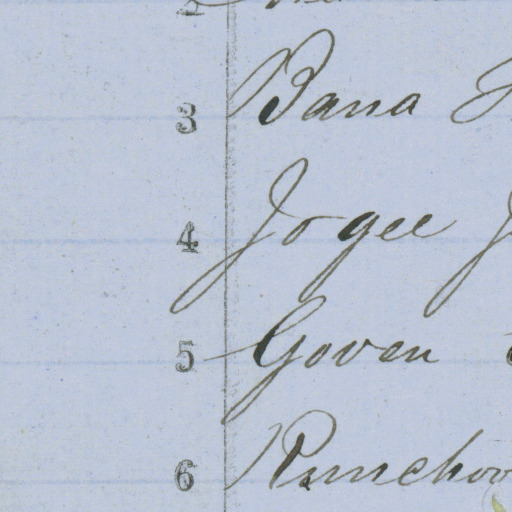 3 Bana
4 Jogee
5 Goven
6 Runchoo